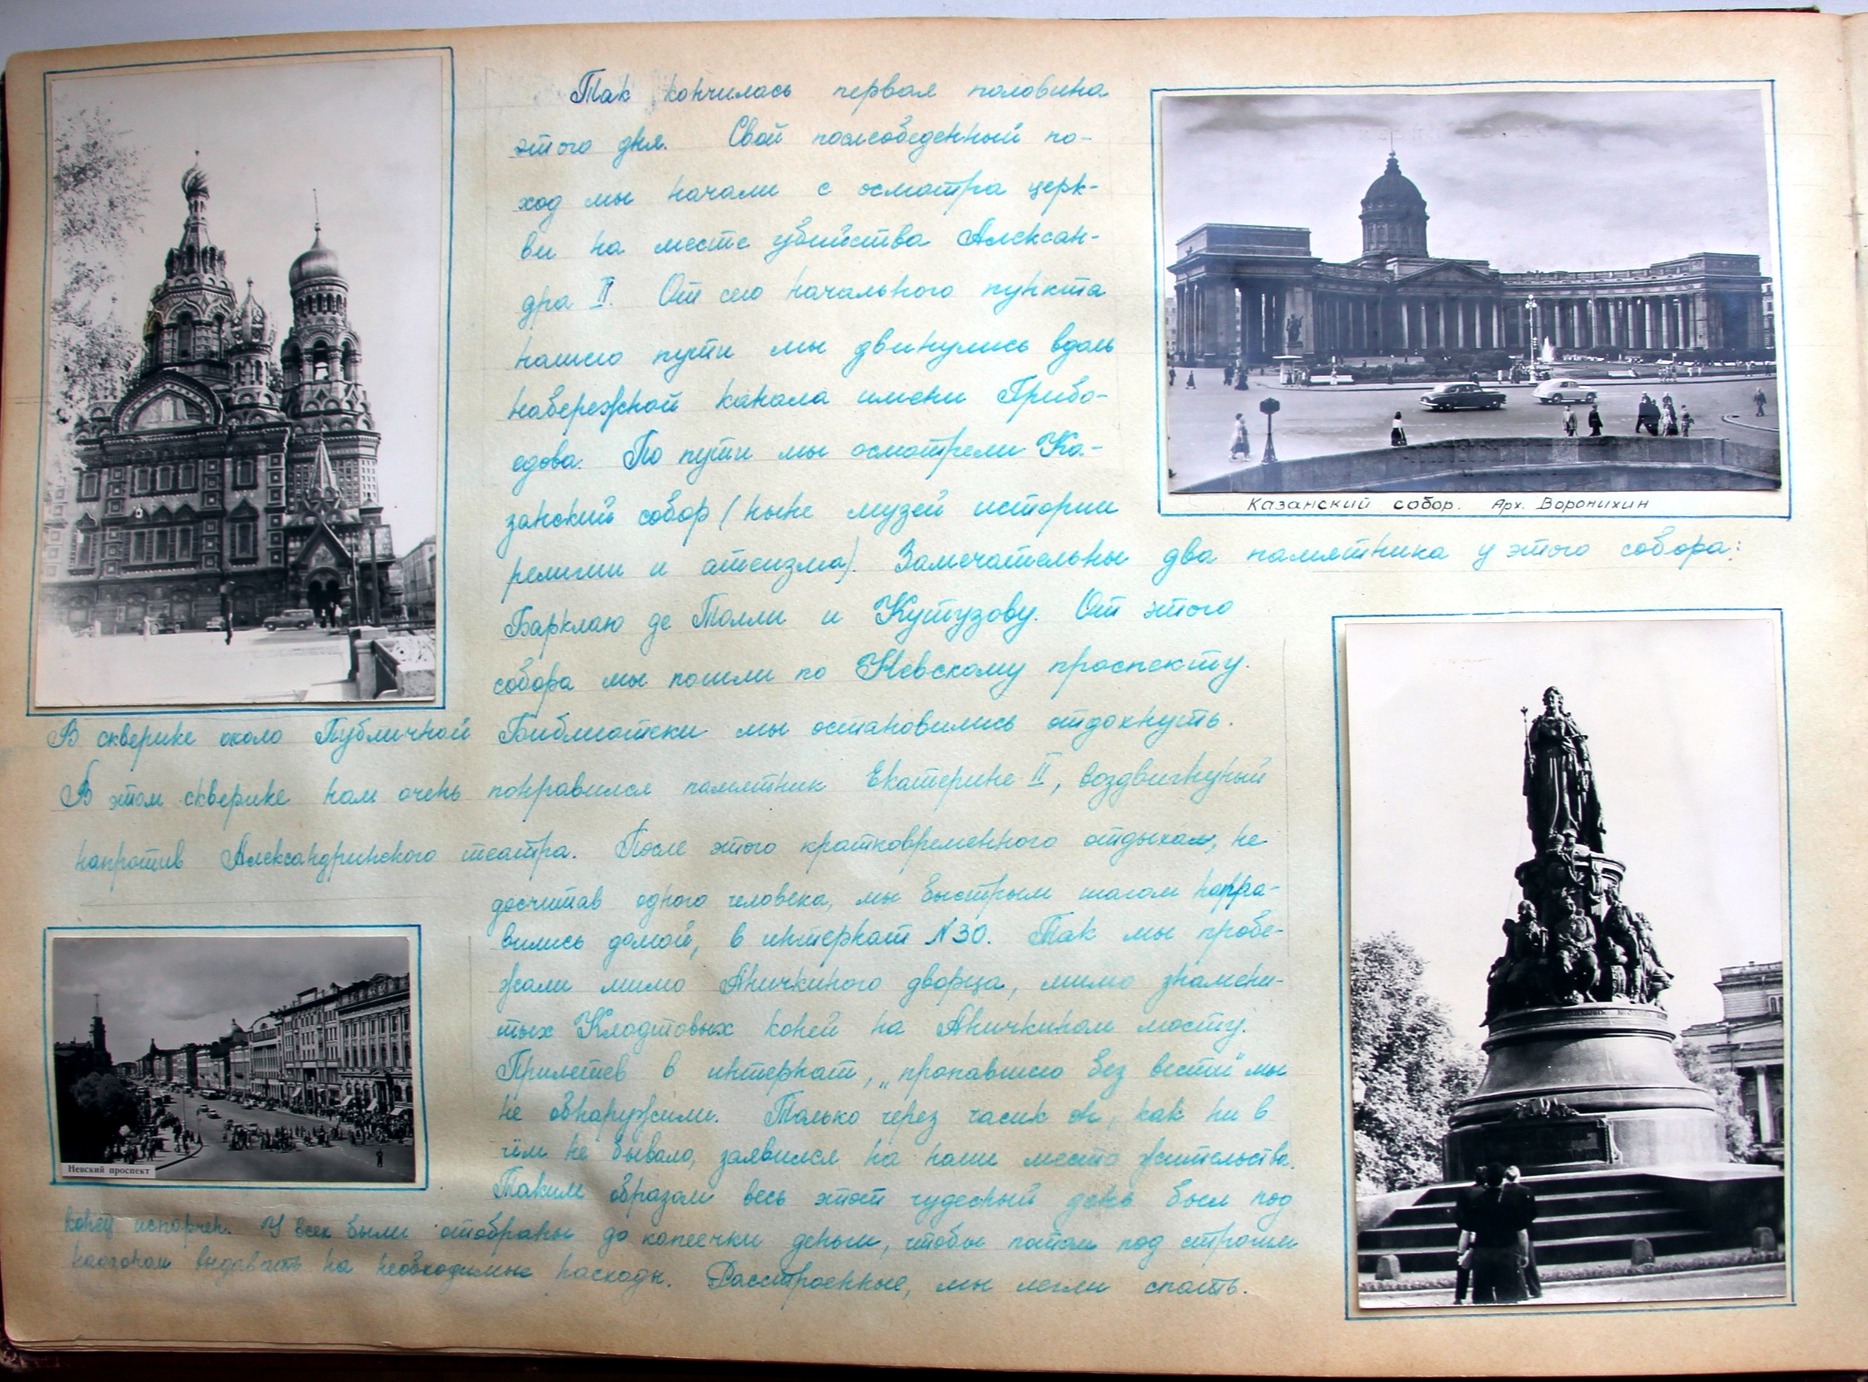 Так кончилась первая половина
этого дня. Свой послеобеденный по-
ход мы начали с осмотра церк-
ви на месте убийства Алексан-
дра II. От сего начального пункта
нашего пути мы двинулись вдоль
набережной канала имени Грибо-
едова. По пути мы осмотрели Ка-
занский собор (ныне музей истории
религии и атеизма). Замечательны два памятника у этого собора:
Барклаю де Толли и Кутузову. От этого
собора мы пошли по Невскому проспекту.
В скверике около Публичной Библиотеки мы остановились отдохнуть.
В этом скверике нам очень понравился памятник Екатерине II, воздвигнутый
напротив Александринского театра. После этого кратковременного отдыха, не
досчитав одного человека, мы быстрым шагом напра-
вились домой, в интернат N 30. Так мы пробе-
жали мимо Аничкиного дворца, мимо знамени-
тых Клодтовых коней на Аничкином мосту.
Прилетев в интернат, „пропавшего без вести" мы
не обнаружили. Только через часик он, как ни в
чём не бывало, заявился на наше место жительства.
Таким образом весь этот чудесный день был под
конец испорчен. У всех были отобраны до копеечки деньги, чтобы потом под строгим
надзором выдавать на необходимые расходы. Расстроенные, мы легли спать.
Казанский собор. Арх. Воронихин
Невский проспект